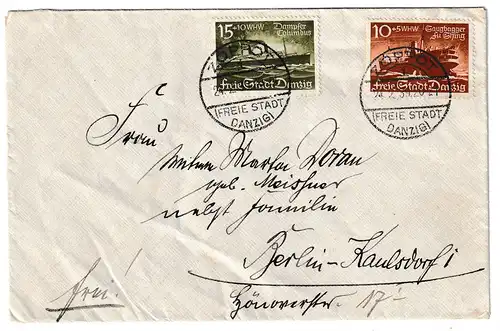 15+10WHW Dampfer Columbus
Freie Stadt Danzig
10+5WHW Saugbagger
Freie Stadt Danzig
ZOPPOT
(FREIE STADT
DANZIG)
ZOPPOT
(FREIE STADT
DANZIG)
Frau
Witwe Martha Doran
geb. Meissner
nebst Familie
Berlin-Kaulsdorf
frei!
Hönowerstr. 17